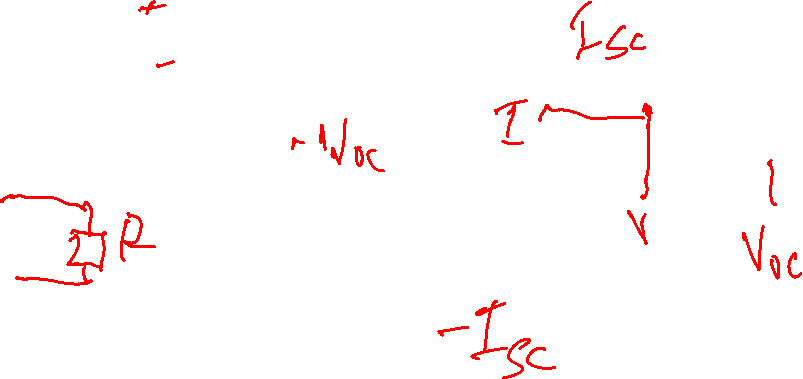 +
-
I_SC
I
-V_OC
R
V
V_OC
-I_SC